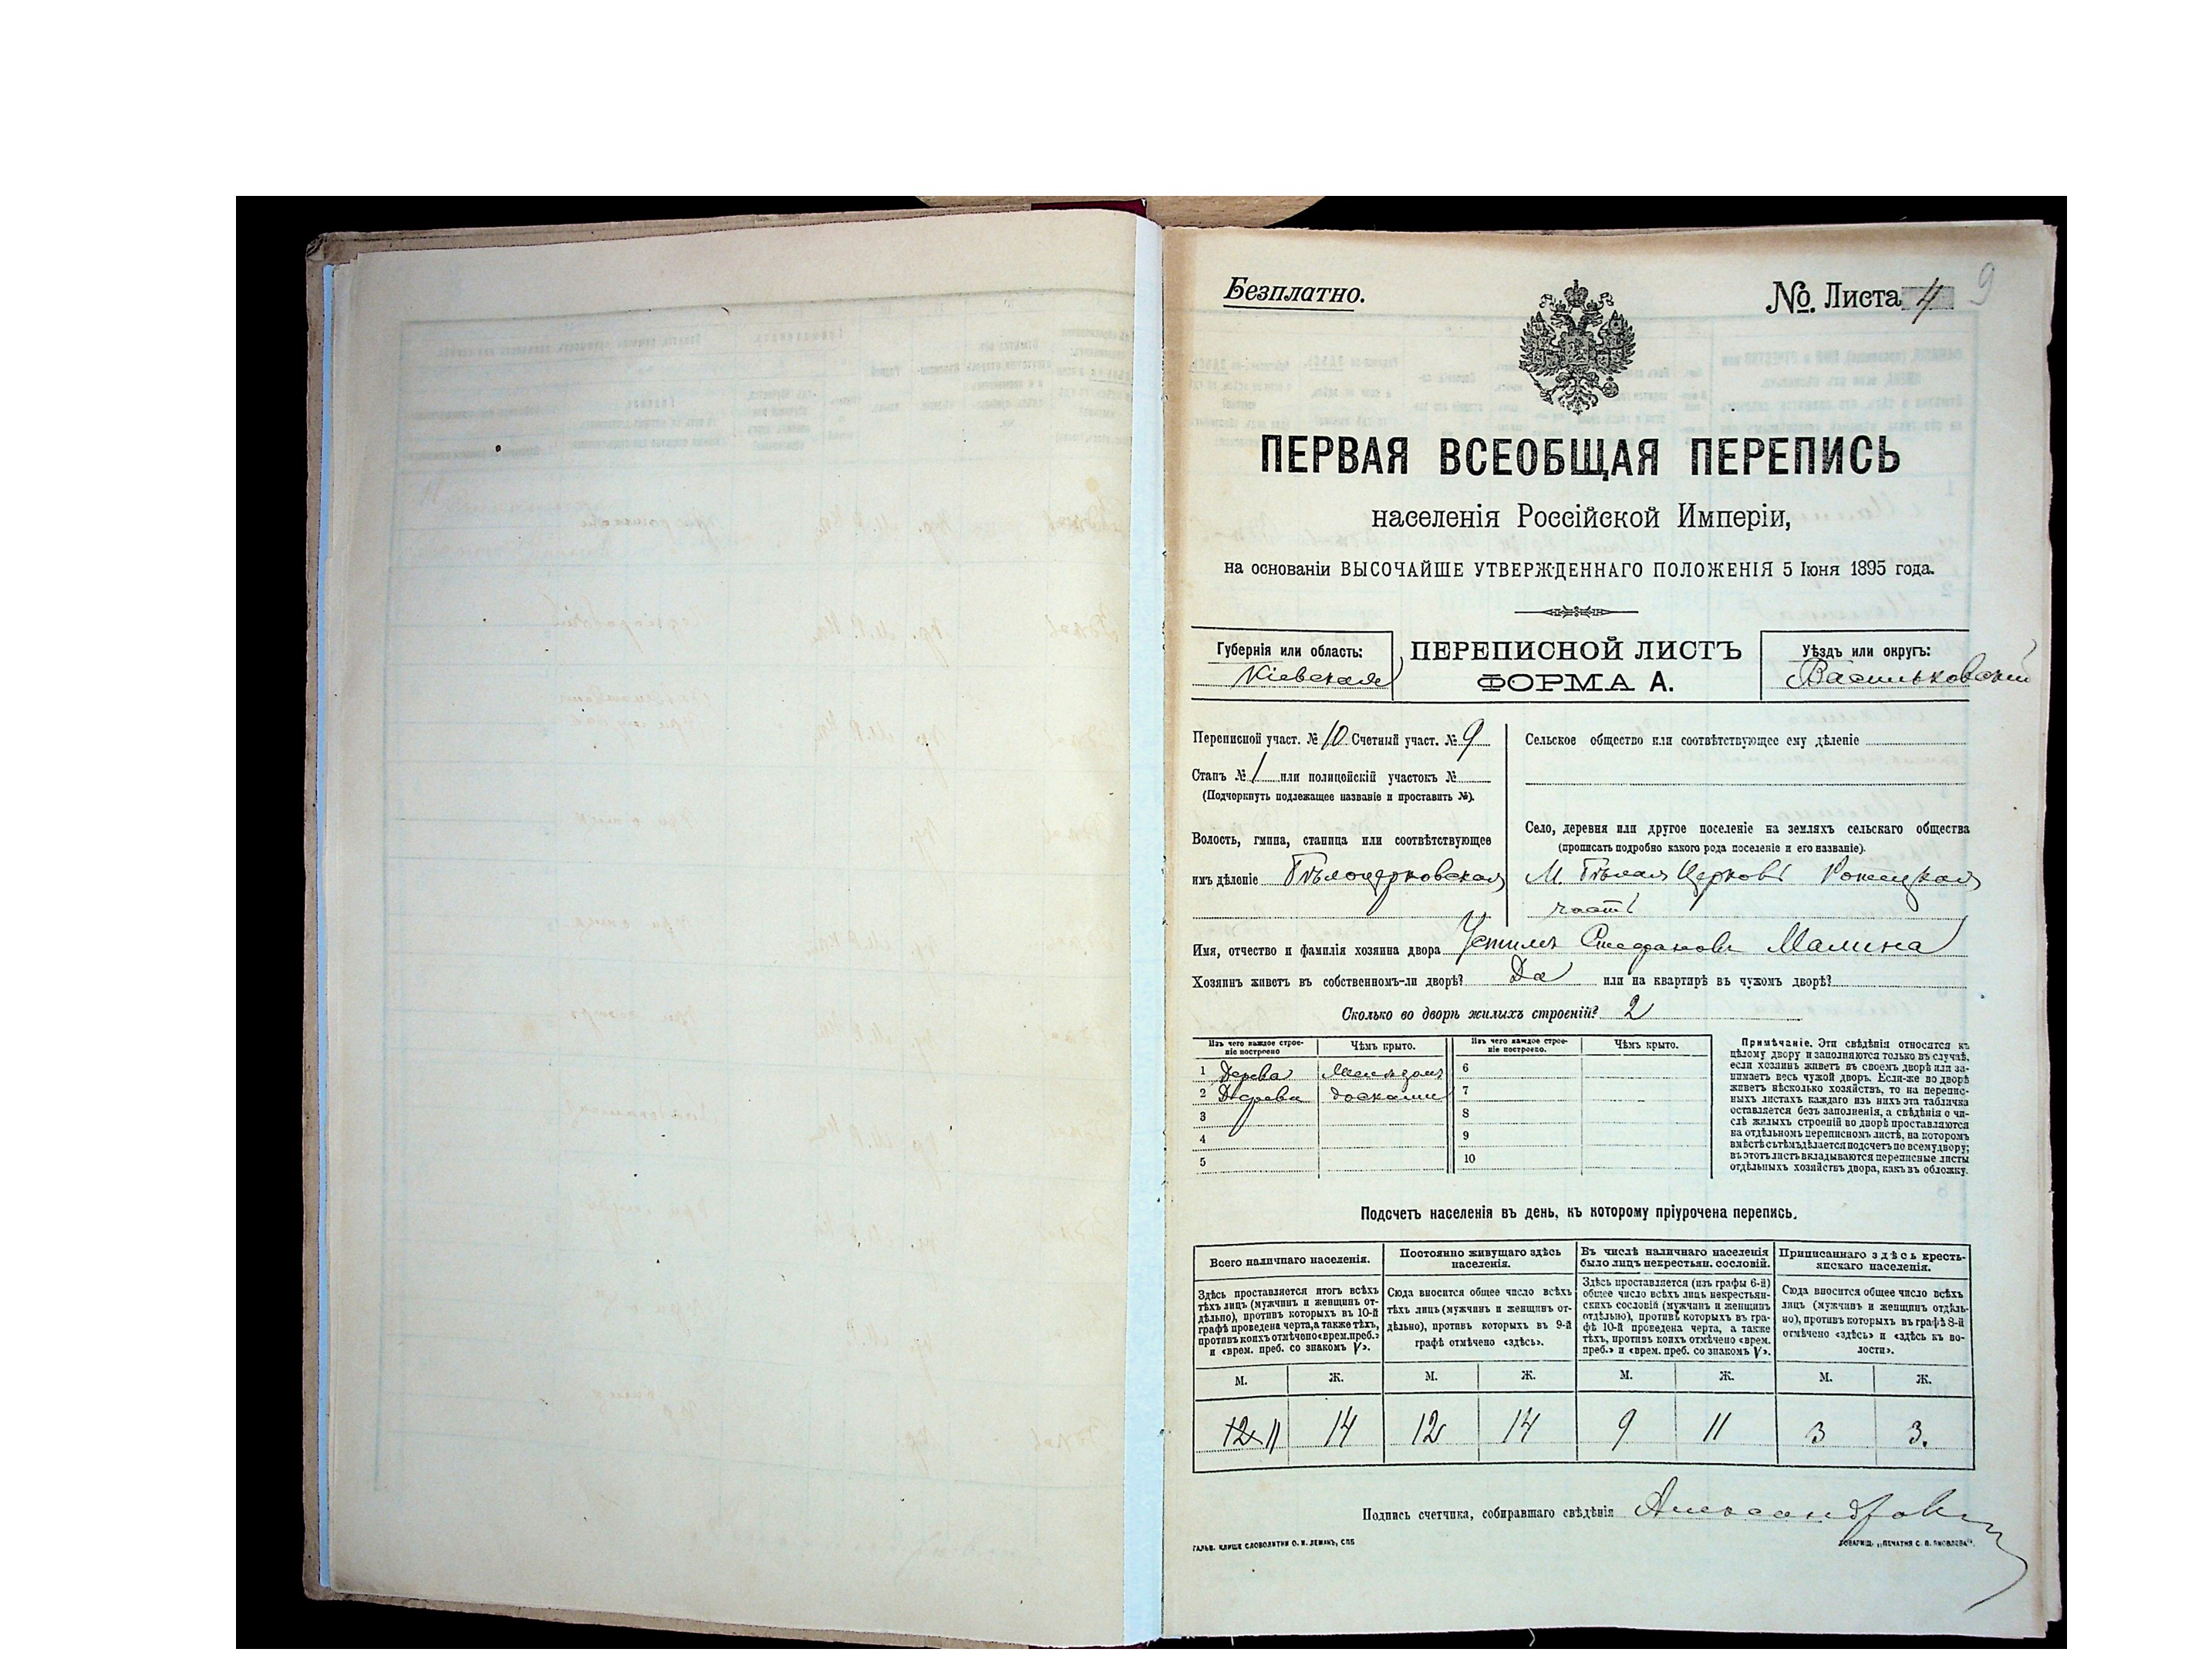 Безплатно.
№ Листа 4
9
ПЕРВАЯ ВСЕОБЩАЯ ПЕРЕПИСЬ
населенія Россійской Имперіи,
на основаніи ВЫСОЧАЙШЕ УТВЕРЖДЕННАГО ПОЛОЖЕНІЯ 5 Іюня 1895 года.
Губернія или область:
Кіевская
ПЕРЕПИСНОЙ ЛИСТЪ
ФОРМА А.
Уѣздъ или округъ:
Васильковскій
Переписной участ. № 10 Счетный участ. № 9
Станъ № 1 или полицейскій участокъ №
(Подчеркнуть подлежащее названіе и проставить №).
Волость, гмина, станица или соотвѣтствующее
имъ дѣленіе Бѣлоцерковская
Сельское общество или соотвѣтствующее ему дѣленіе
Село, деревня или другое поселеніе на земляхъ сельскаго общества
(прописать подробно какого рода поселеніе и его названіе).
М. Бѣлая Церковь
часть
Имя, отчество и фамилія хозяина двора Устимъ Стефановъ Малина
Хозяинъ живетъ въ собственномъ-ли дворѣ? Да или на квартирѣ въ чужомъ дворѣ?
Сколько во дворѣ жилыхъ строеній? 2
Изъ чего каждое строе-
ніе построено
Чѣмъ крыто.
Изъ чего каждое строе-
ніе построено.
Чѣмъ крыто.
1 Дерева
2 Дерева досками
3
4
5
6
7
8
9
10
Примѣчаніе. Эти свѣдѣнія относятся къ
цѣлому двору и заполняются только въ случаѣ,
если хозяинъ живетъ въ своемъ дворѣ или за-
нимаетъ весь чужой дворъ. Если-же во дворѣ
живетъ нѣсколько хозяйствъ, то на перепис-
ныхъ листахъ каждаго изъ нихъ эта табличка
оставляется безъ заполненія, а свѣдѣнія о чи-
слѣ жилыхъ строеній во дворѣ проставляются
на отдѣльномъ переписномъ листѣ, на которомъ
вмѣстѣ съ тѣмъ дѣлается подсчетъ по всему двору;
въ этотъ листъ вкладываются переписные листы
отдѣльныхъ хозяйствъ двора, какъ въ обложку.
Подсчетъ населенія въ день, къ которому пріурочена перепись.
Всего наличнаго населенія.
Постоянно живущаго здѣсь
населенія.
Въ числѣ наличнаго населенія
было лицъ некрестьян. сословій.
Приписаннаго здѣсь кресть-
янскаго населенія.
Здѣсь проставляется итогъ всѣхъ
тѣхъ лицъ (мужчинъ и женщинъ от-
дѣльно), противъ которыхъ въ 10-й
графѣ проведена черта, а также тѣхъ,
противъ коихъ отмѣчено «врем. преб.»
и «врем. преб. со знакомъ V».
Сюда вносится общее число всѣхъ
тѣхъ лицъ (мужчинъ и женщинъ от-
дѣльно), противъ которыхъ въ 9-й
графѣ отмѣчено «здѣсь».
Здѣсь проставляется (изъ графы 6-й)
общее число всѣхъ лицъ некрестьян-
скихъ сословій (мужчинъ и женщинъ
отдѣльно), противъ которыхъ въ гра-
фѣ 10-й проведена черта, а также
тѣхъ, противъ коихъ отмѣчено «врем.
преб.» и «врем. преб. со знакомъ V».
Сюда вносится общее число всѣхъ
лицъ (мужчинъ и женщинъ отдѣль-
но), противъ которыхъ въ графѣ 8-й
отмѣчено «здѣсь» и «здѣсь къ во-
лости».
М. Ж. М. Ж. М. Ж. М. Ж.
12 11 14 12 14 9 11 3 3.
Подпись счетчика, собиравшаго свѣдѣнія
ГАЛЬВ. КЛИШЕ СЛОВОЛИТНИ О. И. ЛЕМАНЪ, СПБ
ТОВАРИЩ. „ПЕЧАТНЯ С. П. ЯКОВЛЕВА“.